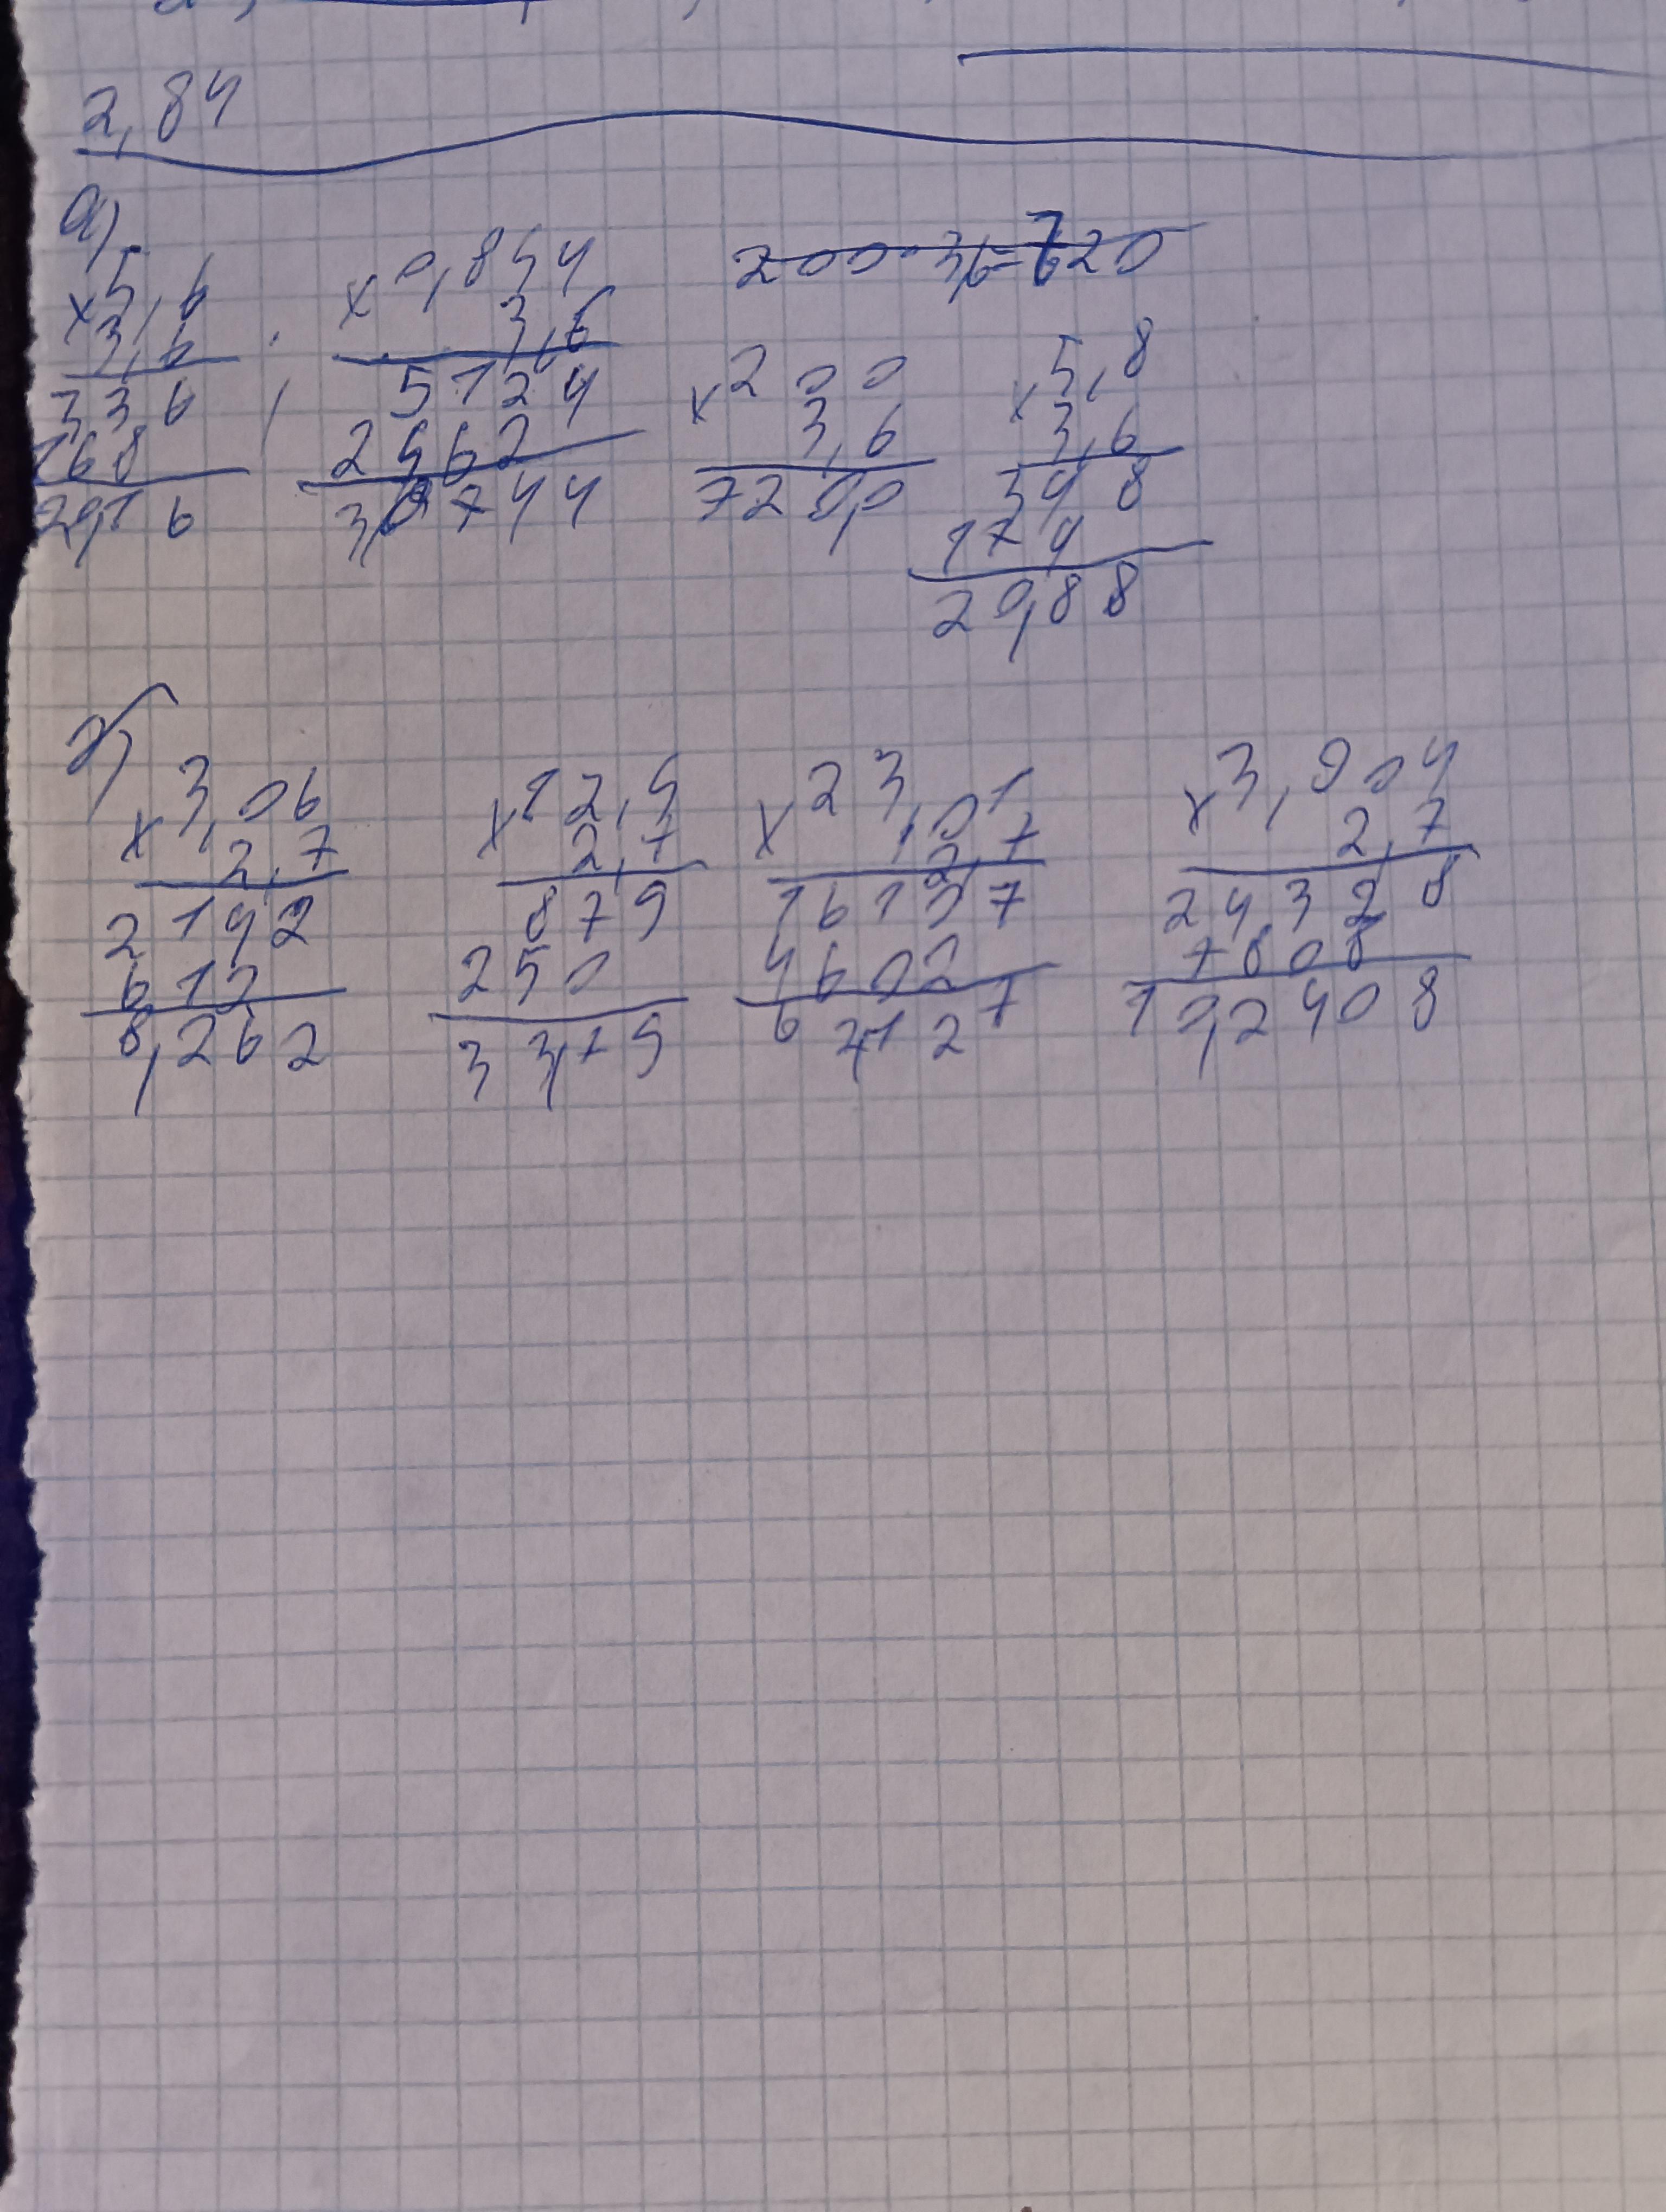 2,84
а)
× 5,6
3,6
336
168
20,16
× 0,854
3,6
5124
2562
3,0744
200·3,6=720
× 200
3,6
720,0
× 5,8
3,6
348
174
20,88
× 3,06
2,7
2142
612
8,262
× 12,5
2,7
875
250
33,75
× 23,01
2,7
16107
4602
62,127
× 3,904
2,7
24328
7808
10,2408